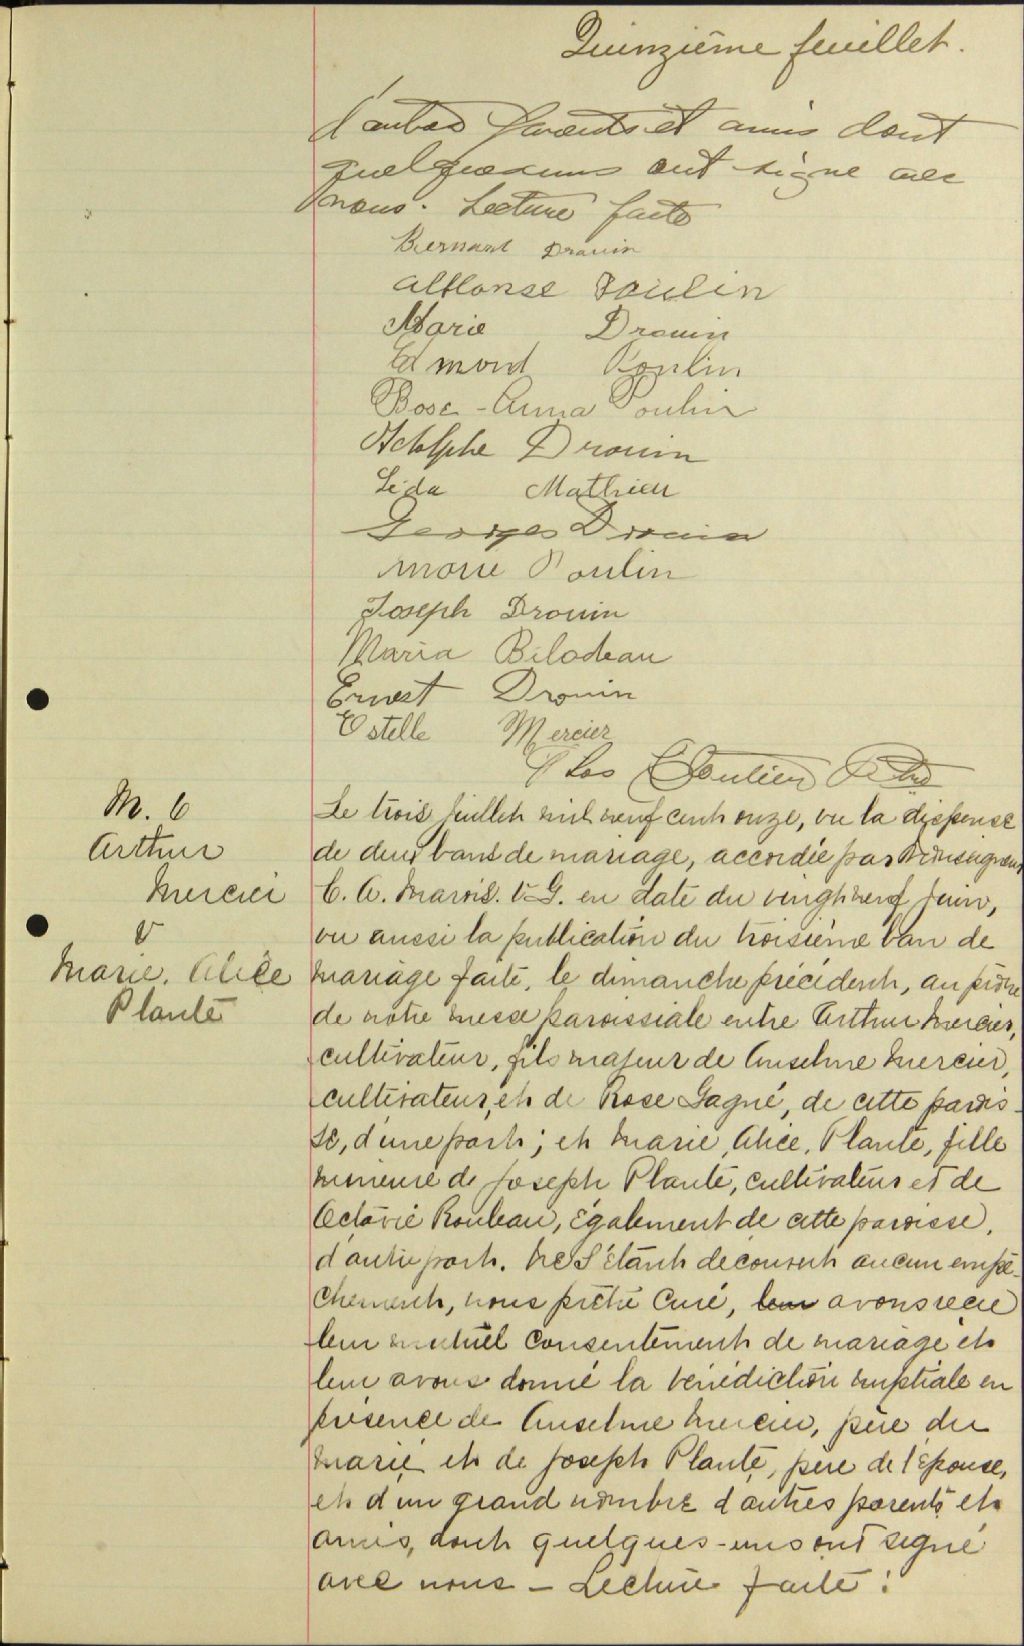 Quinzième feuillet.
d'autres parents et amis dont
quelques uns ont signé avec
nous. Lecture faite
Bernard Drouin
Alphonse Poulin
Marie Drouin
Edmond Poulin
Rose-Anna Poulin
Adolphe Drouin
Léda Mathieu
Georges Drouin
Marie Poulin
Joseph Drouin
Maria Bilodeau
Ernest Drouin
Estelle Mercier
Ptre
M. 6
Arthur
Mercier
&
Marie. Alice
Plante
Le trois juillet mil neuf cent onze, vu la dispense
de deux bans de mariage, accordée par Monseigneur
C. A. Marois. V.G. en date du vingt neuf juin,
vu aussi la publication du troisième ban de
mariage faite, le dimanche précédent, au prône
de notre messe paroissiale entre Arthur Mercier,
cultivateur, fils majeur de Anselme Mercier,
cultivateur, et de Rose Gagné, de cette parois-
se, d'une part; et Marie, Alice, Plante, fille
mineure de Joseph Plante, cultivateur et de
Octavie Rouleau, également de cette paroisse,
d'autre part. Ne s'étant découvert aucun empê-
chement, nous prêtre curé, leur avons reçu
leur mutuel consentement de mariage et
leur avons donné la bénédiction nuptiale en
présence de Anselme Mercier, père du
marié et de Joseph Plante, père de l'épouse,
et d'un grand nombre d'autres parents et
amis, dont quelques-uns ont signé
avec nous – Lecture faite :